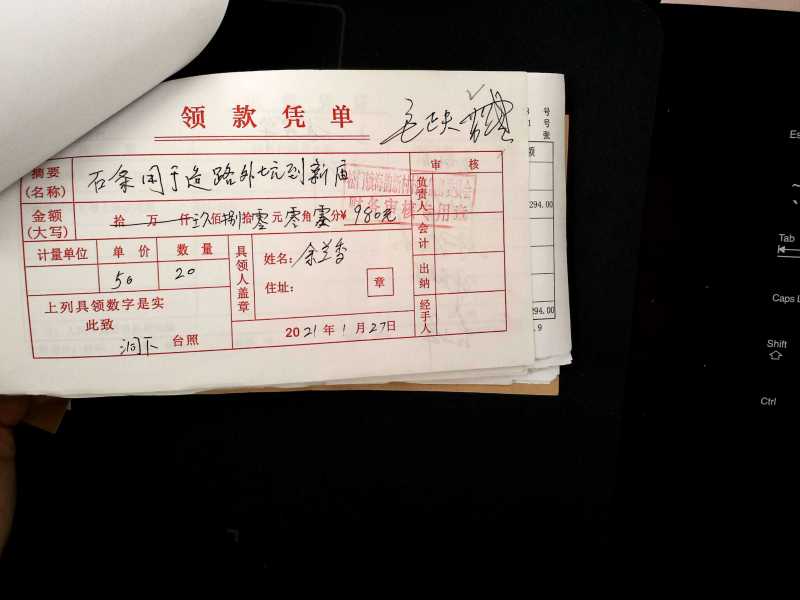 领款凭单
摘要(名称) 石条用于造路外坑到新庙
审核
金额(大写) 拾万仟玖佰捌拾零元零角零分¥ 980元
计量单位 单价 数量
50 20
具领人盖章
姓名: 余兰香
住址:
章
负责人
会计
出纳
经手人
上列具领数字是实
此致
洞下 台照
2021年1月27日
财务审核专用章
号
号
张
额
294.00
294.00
.9
Es
~
Tab
Caps L
Shift
Ctrl